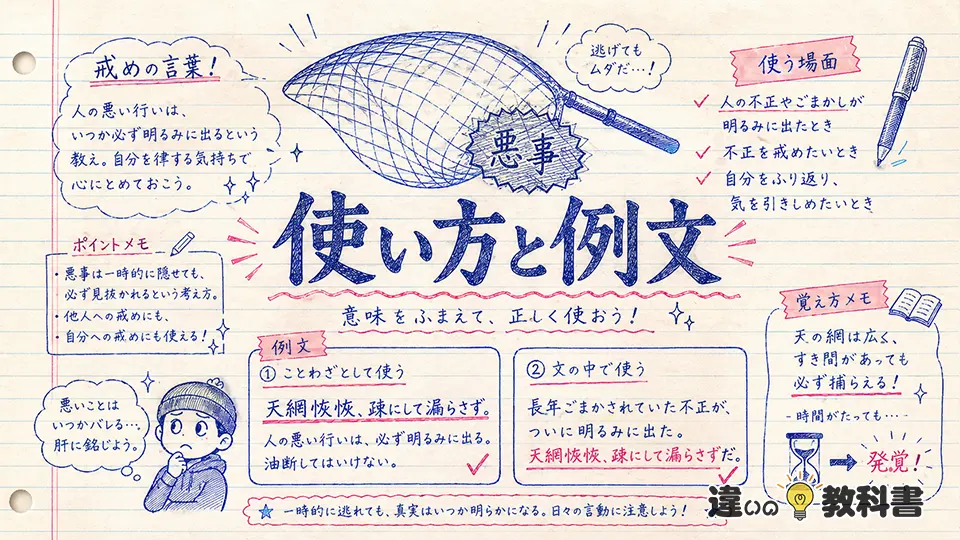 戒めの言葉！
人の悪い行いは、
いつか必ず明るみに出るという
教え。自分を律する気持ちで
心にとめておこう。
逃げても
ムダだ…！
悪事
使う場面
人の不正やごまかしが
明るみに出たとき
不正を戒めたいとき
自分をふり返り、
気を引きしめたいとき
使い方と例文
意味をふまえて、正しく使おう！
ポイントメモ
・悪事は一時的に隠せても、
必ず見抜かれるという考え方。
・他人への戒めにも、
自分への戒めにも使える！
悪いことは
いつかバレる…。
肝に銘じよう。
例文
① ことわざとして使う
天網恢恢、疎にして漏らさず。
人の悪い行いは、必ず明るみに出る。
油断してはいけない。
② 文の中で使う
長年ごまかされていた不正が、
ついに明るみに出た。
天網恢恢、疎にして漏らさずだ。
覚え方メモ
天の網は広く、
すき間があっても
必ず捕らえる！
- 時間がたっても… -
発覚！
★ 一時的に逃れても、真実はいつか明らかになる。日々の言動に注意しよう！
違いの教科書